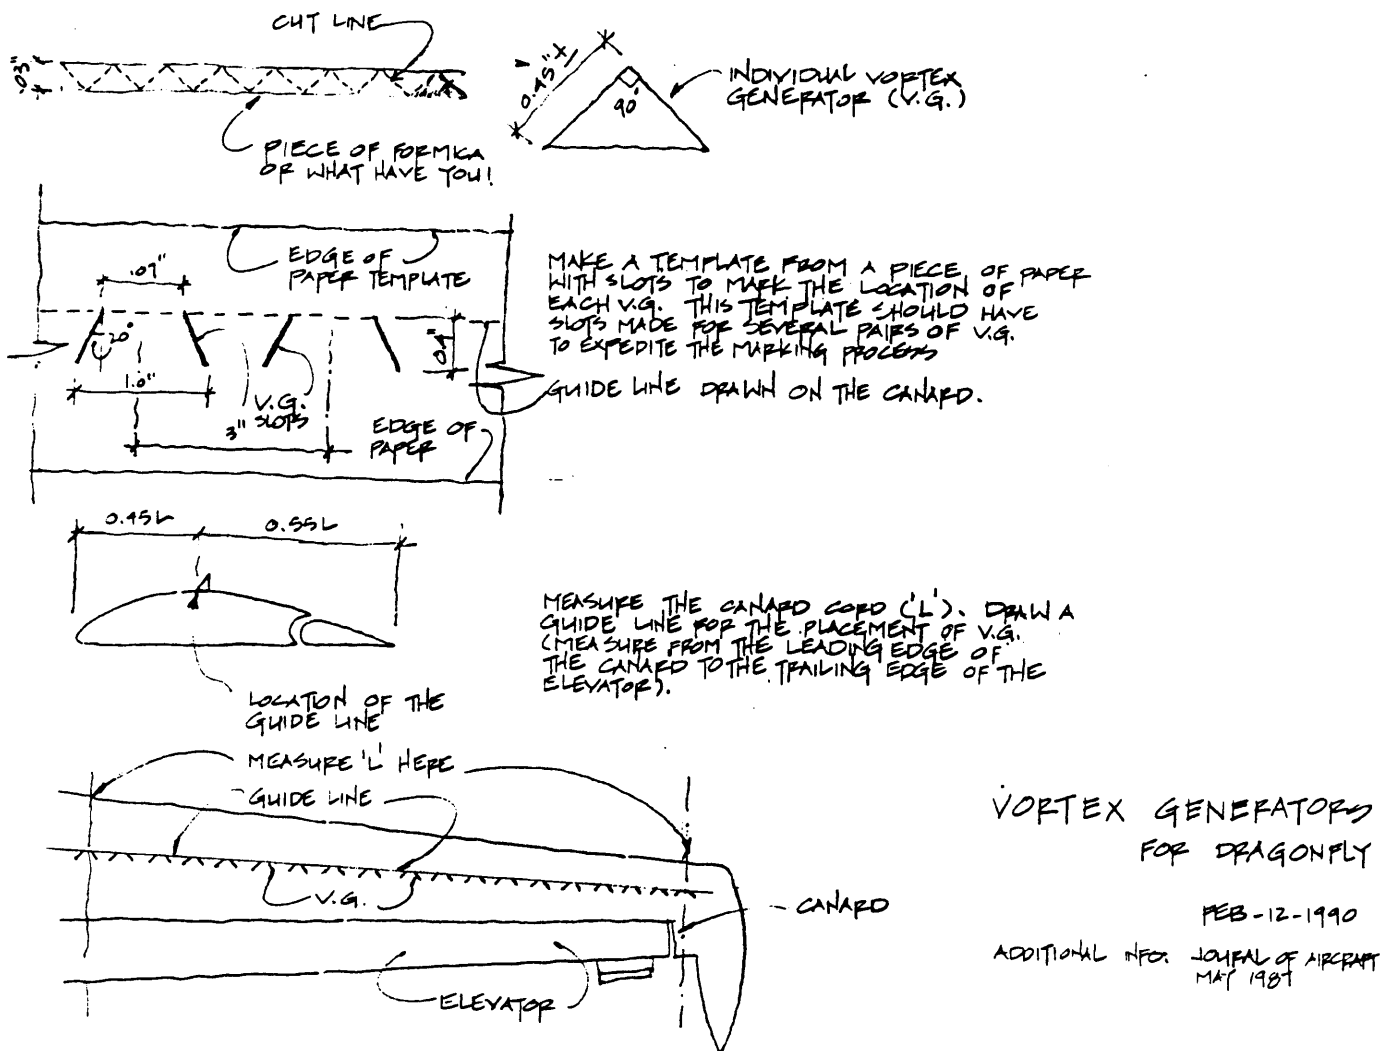 CUT LINE
.03"
PIECE OF FORMICA
OR WHAT HAVE YOU!
0.45"±
90°
INDIVIDUAL VORTEX
GENERATOR (V.G.)
EDGE OF
PAPER TEMPLATE
.07"
20°
1.0"
V.G.
SLOTS
3"
0.4"
EDGE OF
PAPER
MAKE A TEMPLATE FROM A PIECE OF PAPER
WITH SLOTS TO MARK THE LOCATION OF
EACH V.G. THIS TEMPLATE SHOULD HAVE
SLOTS MADE FOR SEVERAL PAIRS OF V.G.
TO EXPEDITE THE MARKING PROCESS
GUIDE LINE DRAWN ON THE CANARD.
0.45L
0.55L
LOCATION OF THE
GUIDE LINE
MEASURE THE CANARD CORD ('L'). DRAW A
GUIDE LINE FOR THE PLACEMENT OF V.G.
(MEASURE FROM THE LEADING EDGE OF
THE CANARD TO THE TRAILING EDGE OF THE
ELEVATOR).
MEASURE 'L' HERE
GUIDE LINE
V.G.
CANARD
ELEVATOR
VORTEX GENERATORS
FOR DRAGONFLY
FEB-12-1990
ADDITIONAL INFO. JOURAL OF AIRCRAFT
MAY